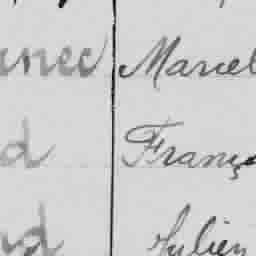 nec Marcel
d França
d Julien